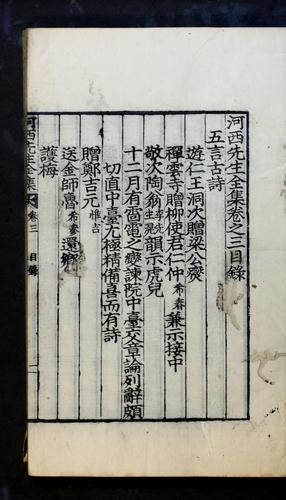 河西先生全集卷之三目錄
五言古詩
遊仁王洞次贈梁公燮
禪雲寺贈柳使君仁仲希春兼示接中
敬次陶翁生員李先韻示虎兒
十二月有雷電之變諫院中臺交章論列辭頗
切直中臺尤極精備喜而有詩
贈鄭吉元惟吉
送金師魯希參還鄉
護梅
河西先生全集 卷三 目錄 一